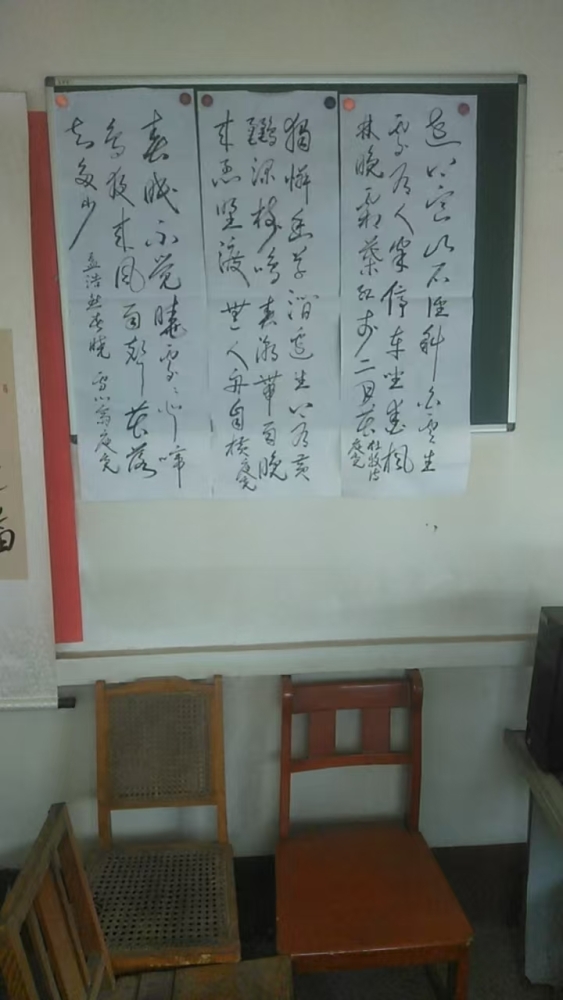 远上寒山石径斜白云生
处有人家停车坐爱枫
林晚霜葉红于二月花
杜牧诗
庭光
獨憐幽草澗边生上有黄
鹂深树鸣春潮带雨晚
来急野渡無人舟自横庭光
春眠不觉晓处处闻啼
鸟夜来风雨声花落
知多少
孟浩然春晓 庭光